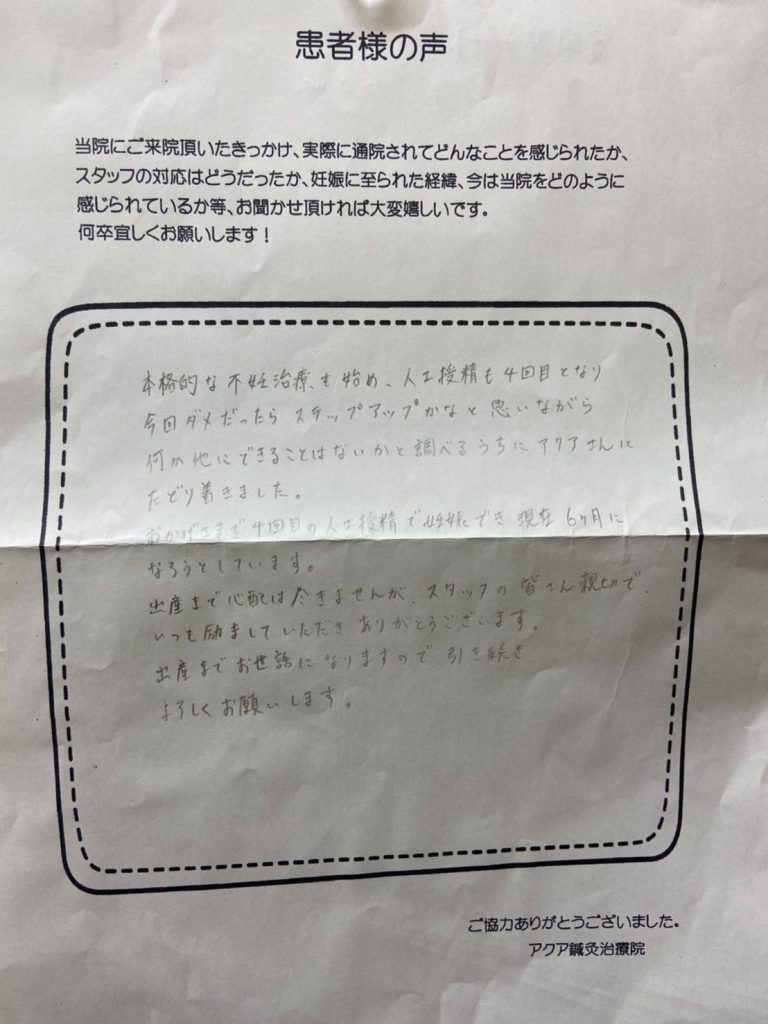 患者様の声
当院にご来院頂いたきっかけ、実際に通院されてどんなことを感じられたか、
スタッフの対応はどうだったか、妊娠に至られた経緯、今は当院をどのように
感じられているか等、お聞かせ頂ければ大変嬉しいです。
何卒宜しくお願いします！
本格的な不妊治療を始め、人工授精も4回目となり
今回ダメだったらステップアップかなと思いながら
何か他にできることはないかと調べるうちにアクアさんに
たどり着きました。
おかげさまで4回目の人工授精で妊娠でき現在6ヶ月に
なろうとしています。
出産まで心配は尽きませんが、スタッフの皆さん親切で、
いつも励ましていただきありがとうございます。
出産までお世話になりますので引き続き
よろしくお願いします。
ご協力ありがとうございました。
アクア鍼灸治療院